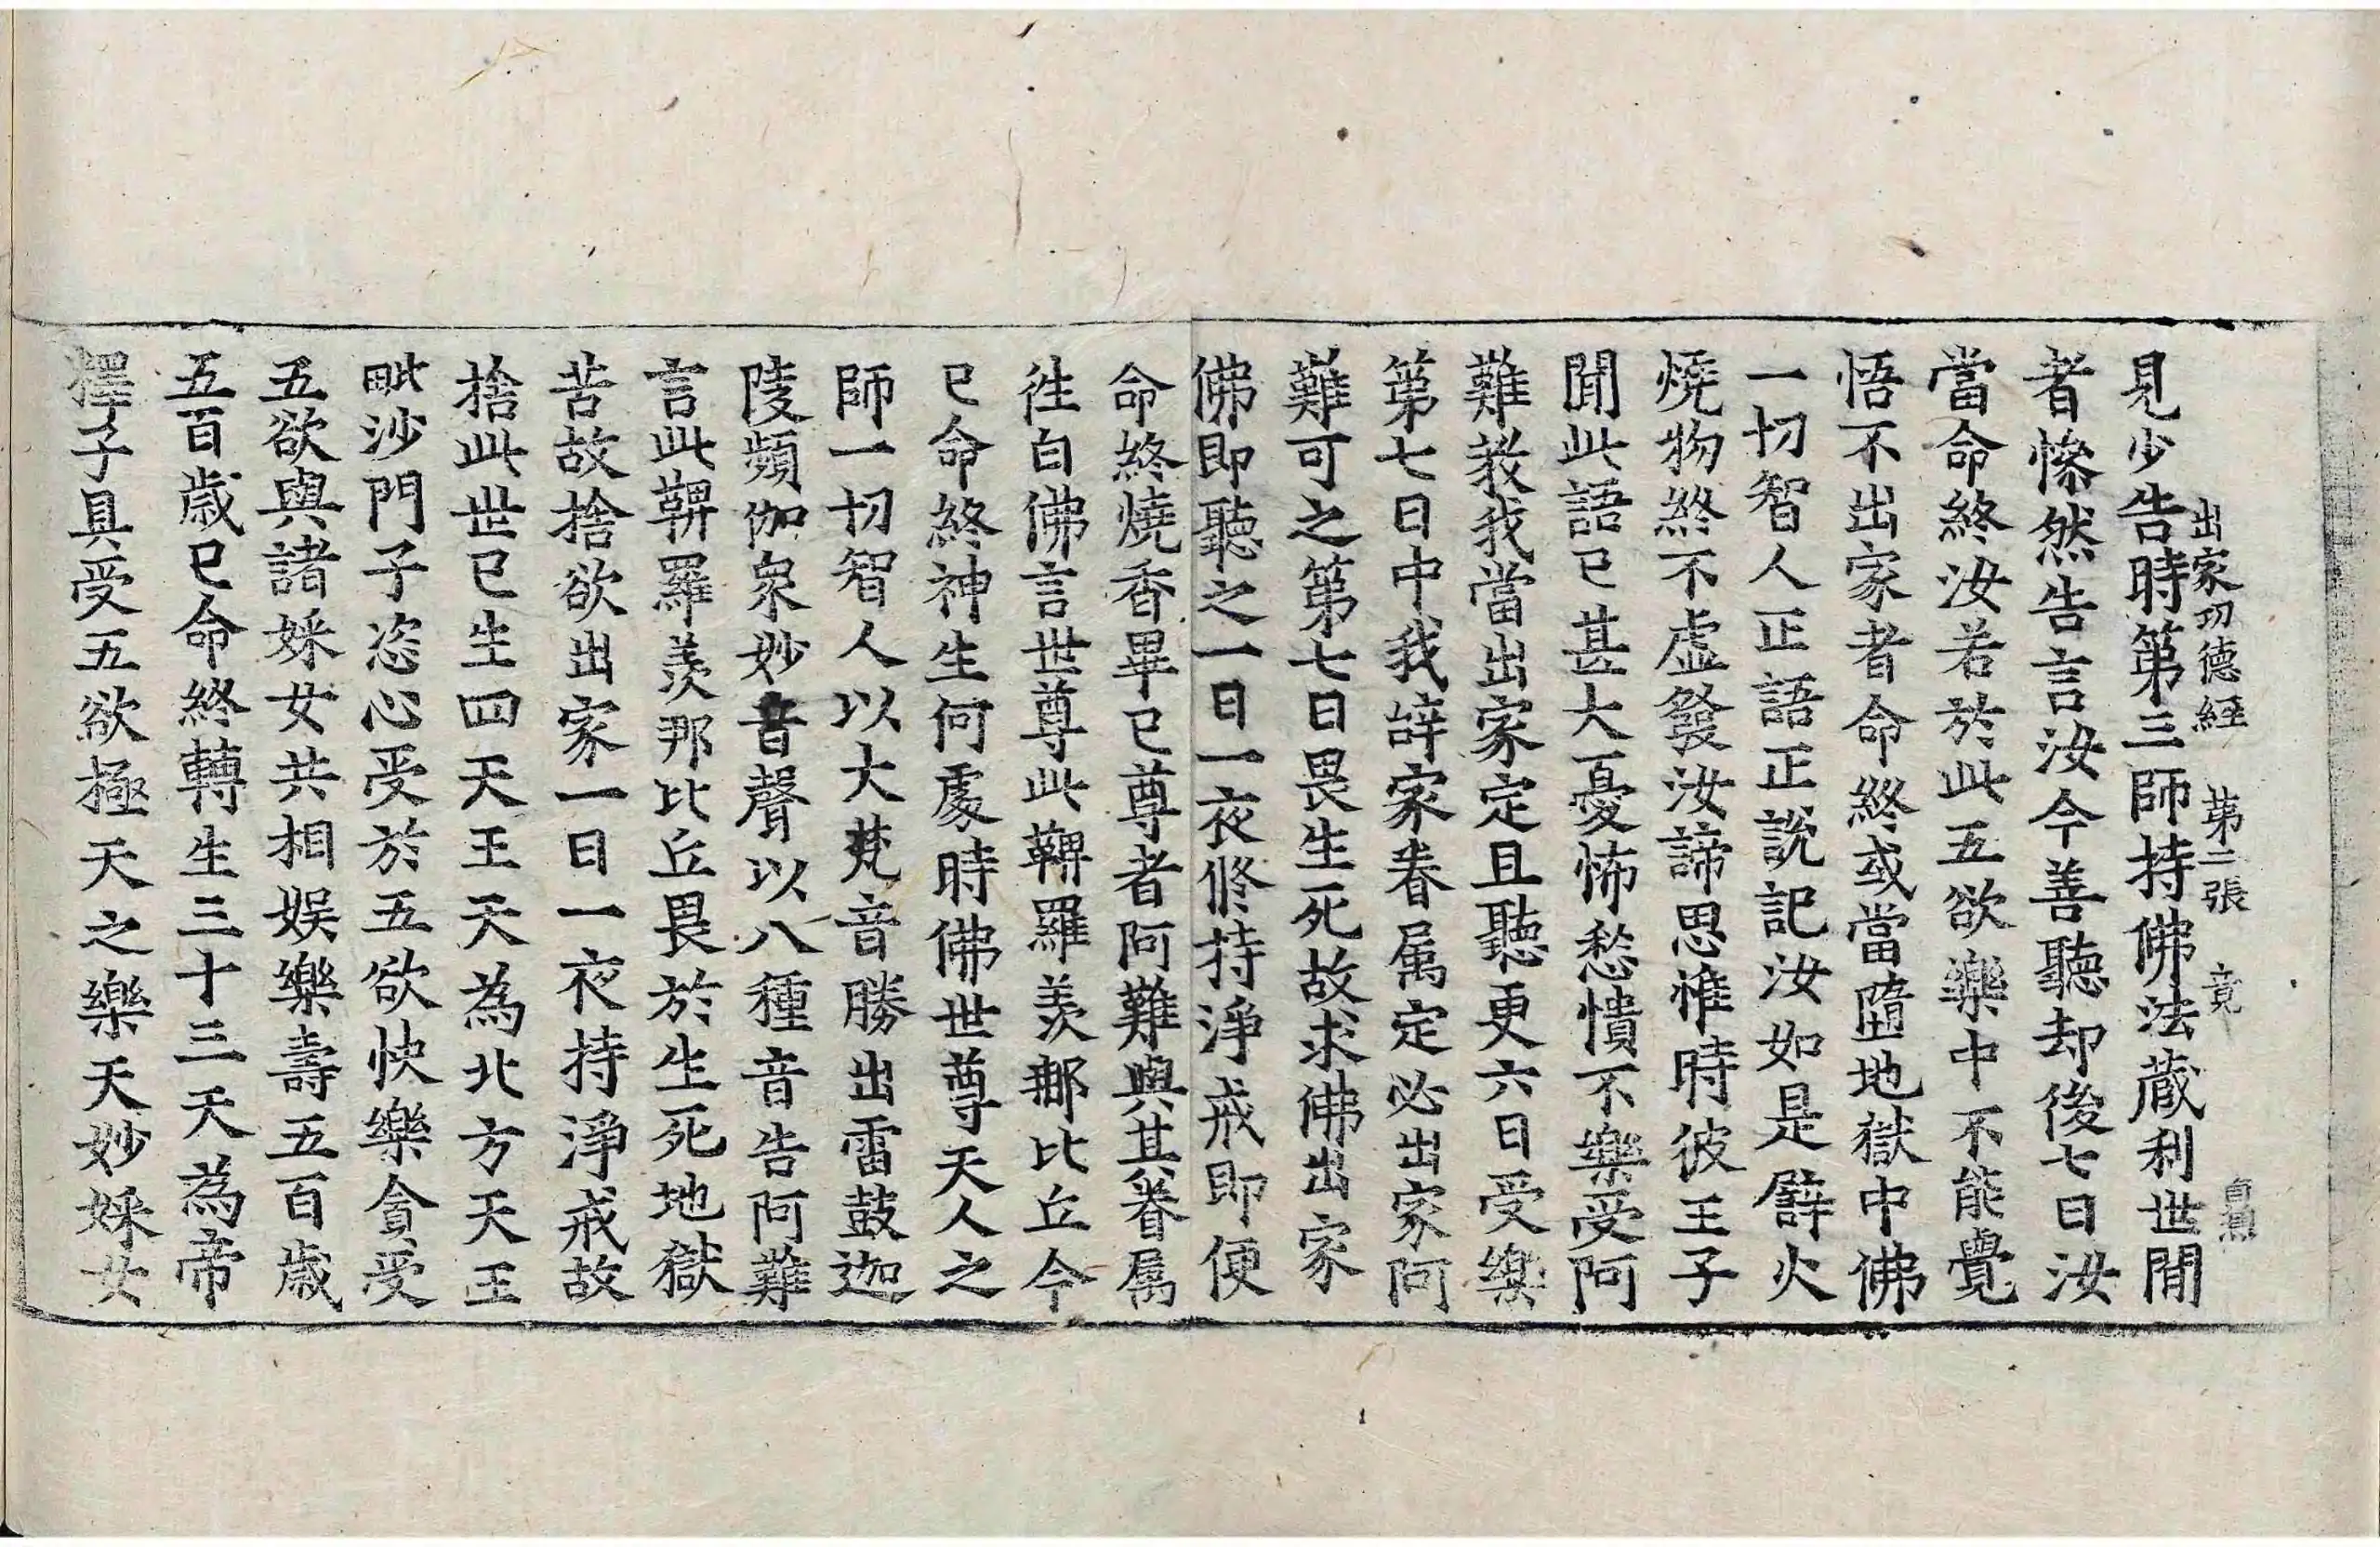 出家功德経 第二張 竟
見少告時第三師持佛法蔵利世間
者慘然告言汝今善聽却後七日汝
當命終汝若於此五欲樂中不能覺
悟不出家者命終或當墮地獄中佛
一切智人正語正說記汝如是譬火
燒物終不虛發汝諦思惟時彼王子
聞此語已甚大憂怖愁憒不樂受阿
難教我當出家定且聽更六日受樂
第七日中我辝家眷属定必出家阿
難可之第七日畏生死故求佛出家
佛即聽之一日一夜修持淨戒即便
命終燒香畢已尊者阿難與其眷属
往白佛言世尊此鞞羅羨那比丘今
已命終神生何處時佛世尊天人之
師一切智人以大梵音勝出雷鼓迦
陵頻伽衆妙音聲以八種音告阿難
言此鞞羅羨那比丘畏於生死地獄
苦故捨欲出家一日一夜持淨戒故
捨此世已生四天王天為北方天王
毗沙門子恣心受於五欲快樂貪受
五欲與諸婇女共相娱樂壽五百歲
五百歲已命終轉生三十三天為帝
釋子具受五欲極天之樂天妙婇女